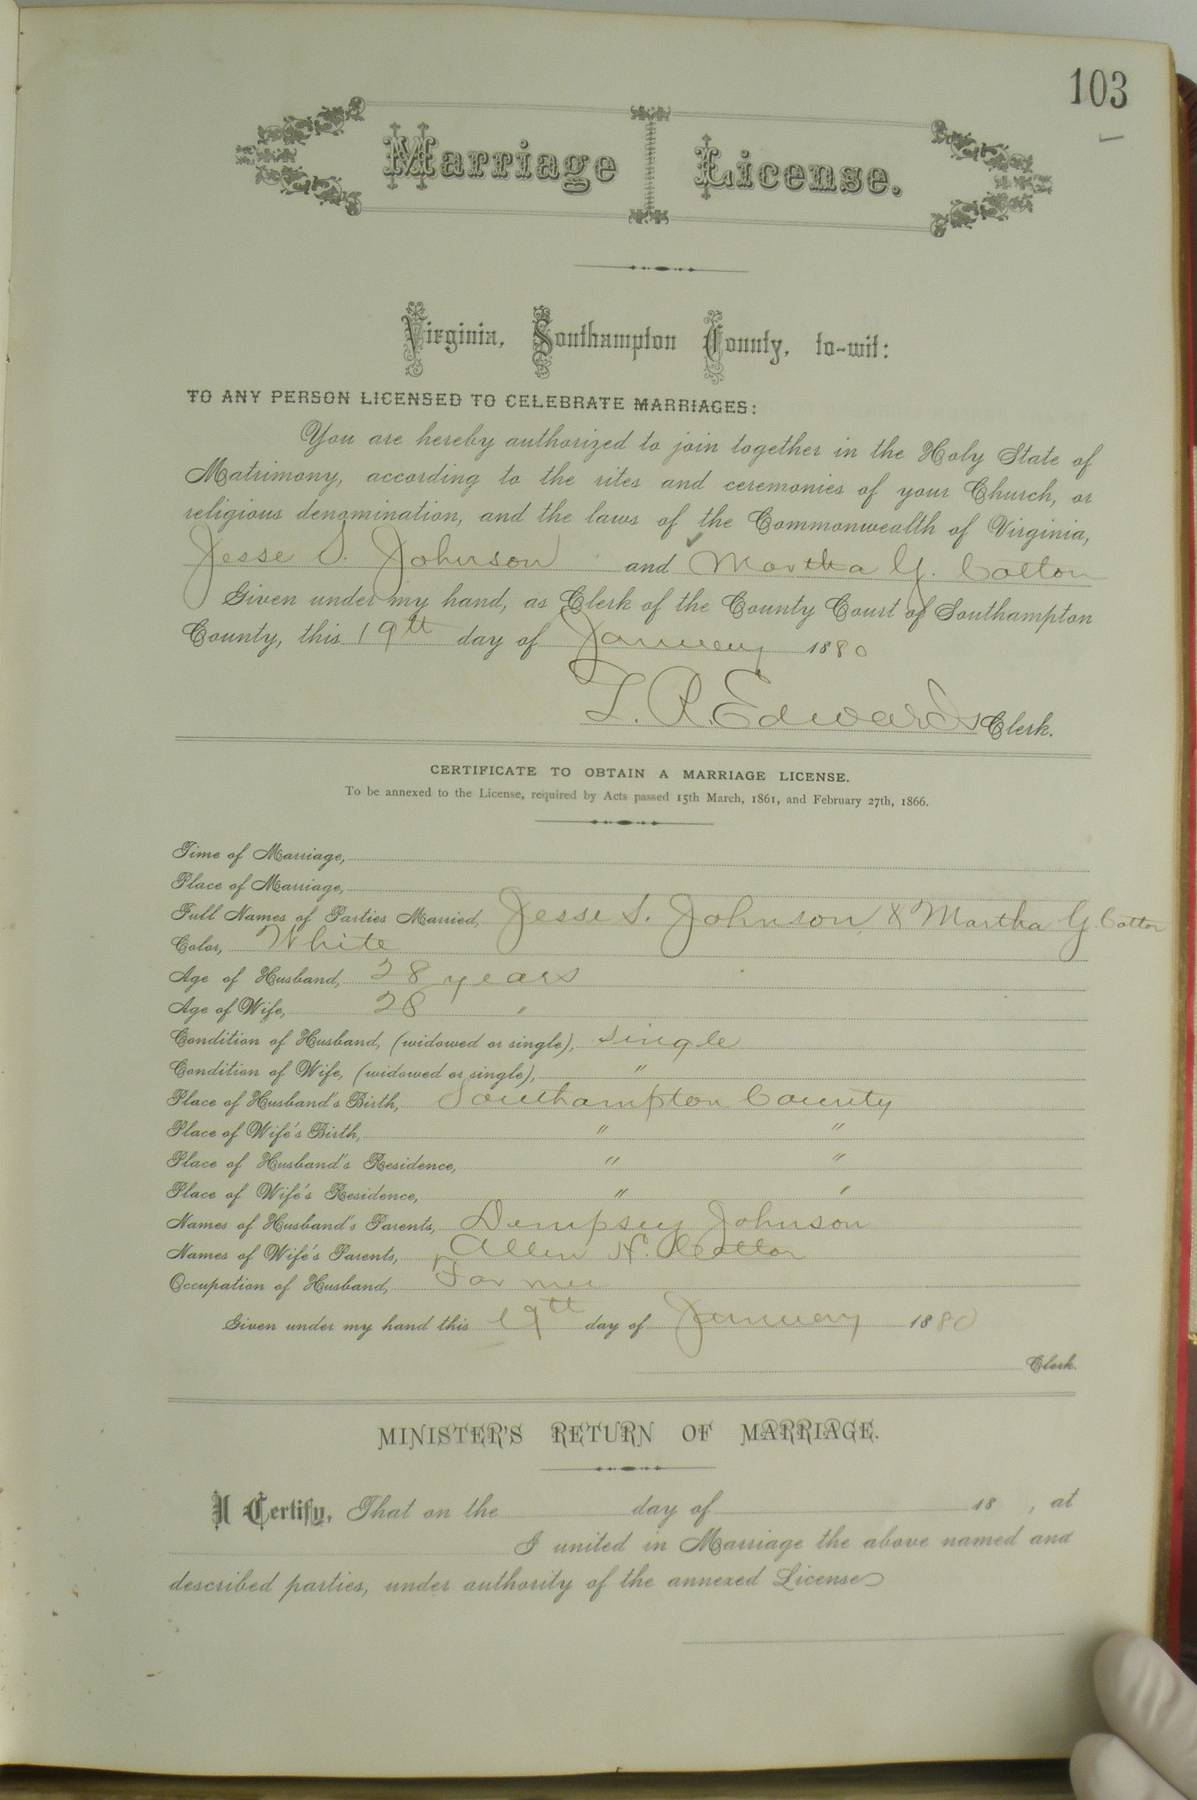 103
Marriage License.
Virginia, Southampton County, to-wit:
TO ANY PERSON LICENSED TO CELEBRATE MARRIAGES:
You are hereby authorized to join together in the Holy State of
Matrimony, according to the rites and ceremonies of your Church, or
religious denomination, and the laws of the Commonwealth of Virginia,
Jesse S. Johnson and Martha Y. Cotton
Given under my hand, as Clerk of the County Court of Southampton
County, this 19th day of January 1880
L. R. Edwards Clerk.
CERTIFICATE TO OBTAIN A MARRIAGE LICENSE.
To be annexed to the License, required by Acts passed 15th March, 1861, and February 27th, 1866.
Time of Marriage,
Place of Marriage,
Full Names of Parties Married, Jesse S. Johnson & Martha Y. Cotton
Color, White
Age of Husband, 28 years
Age of Wife, 28 "
Condition of Husband, (widowed or single), single
Condition of Wife, (widowed or single), "
Place of Husband's Birth, Southampton County
Place of Wife's Birth, " "
Place of Husband's Residence, " "
Place of Wife's Residence, " "
Names of Husband's Parents, Dempsey Johnson
Names of Wife's Parents, Allen H. Cotton
Occupation of Husband, Farmer
Given under my hand this 19th day of January 1880
Clerk.
MINISTER'S RETURN OF MARRIAGE.
I Certify, That on the day of 18 , at
I united in Marriage the above named and
described parties, under authority of the annexed License